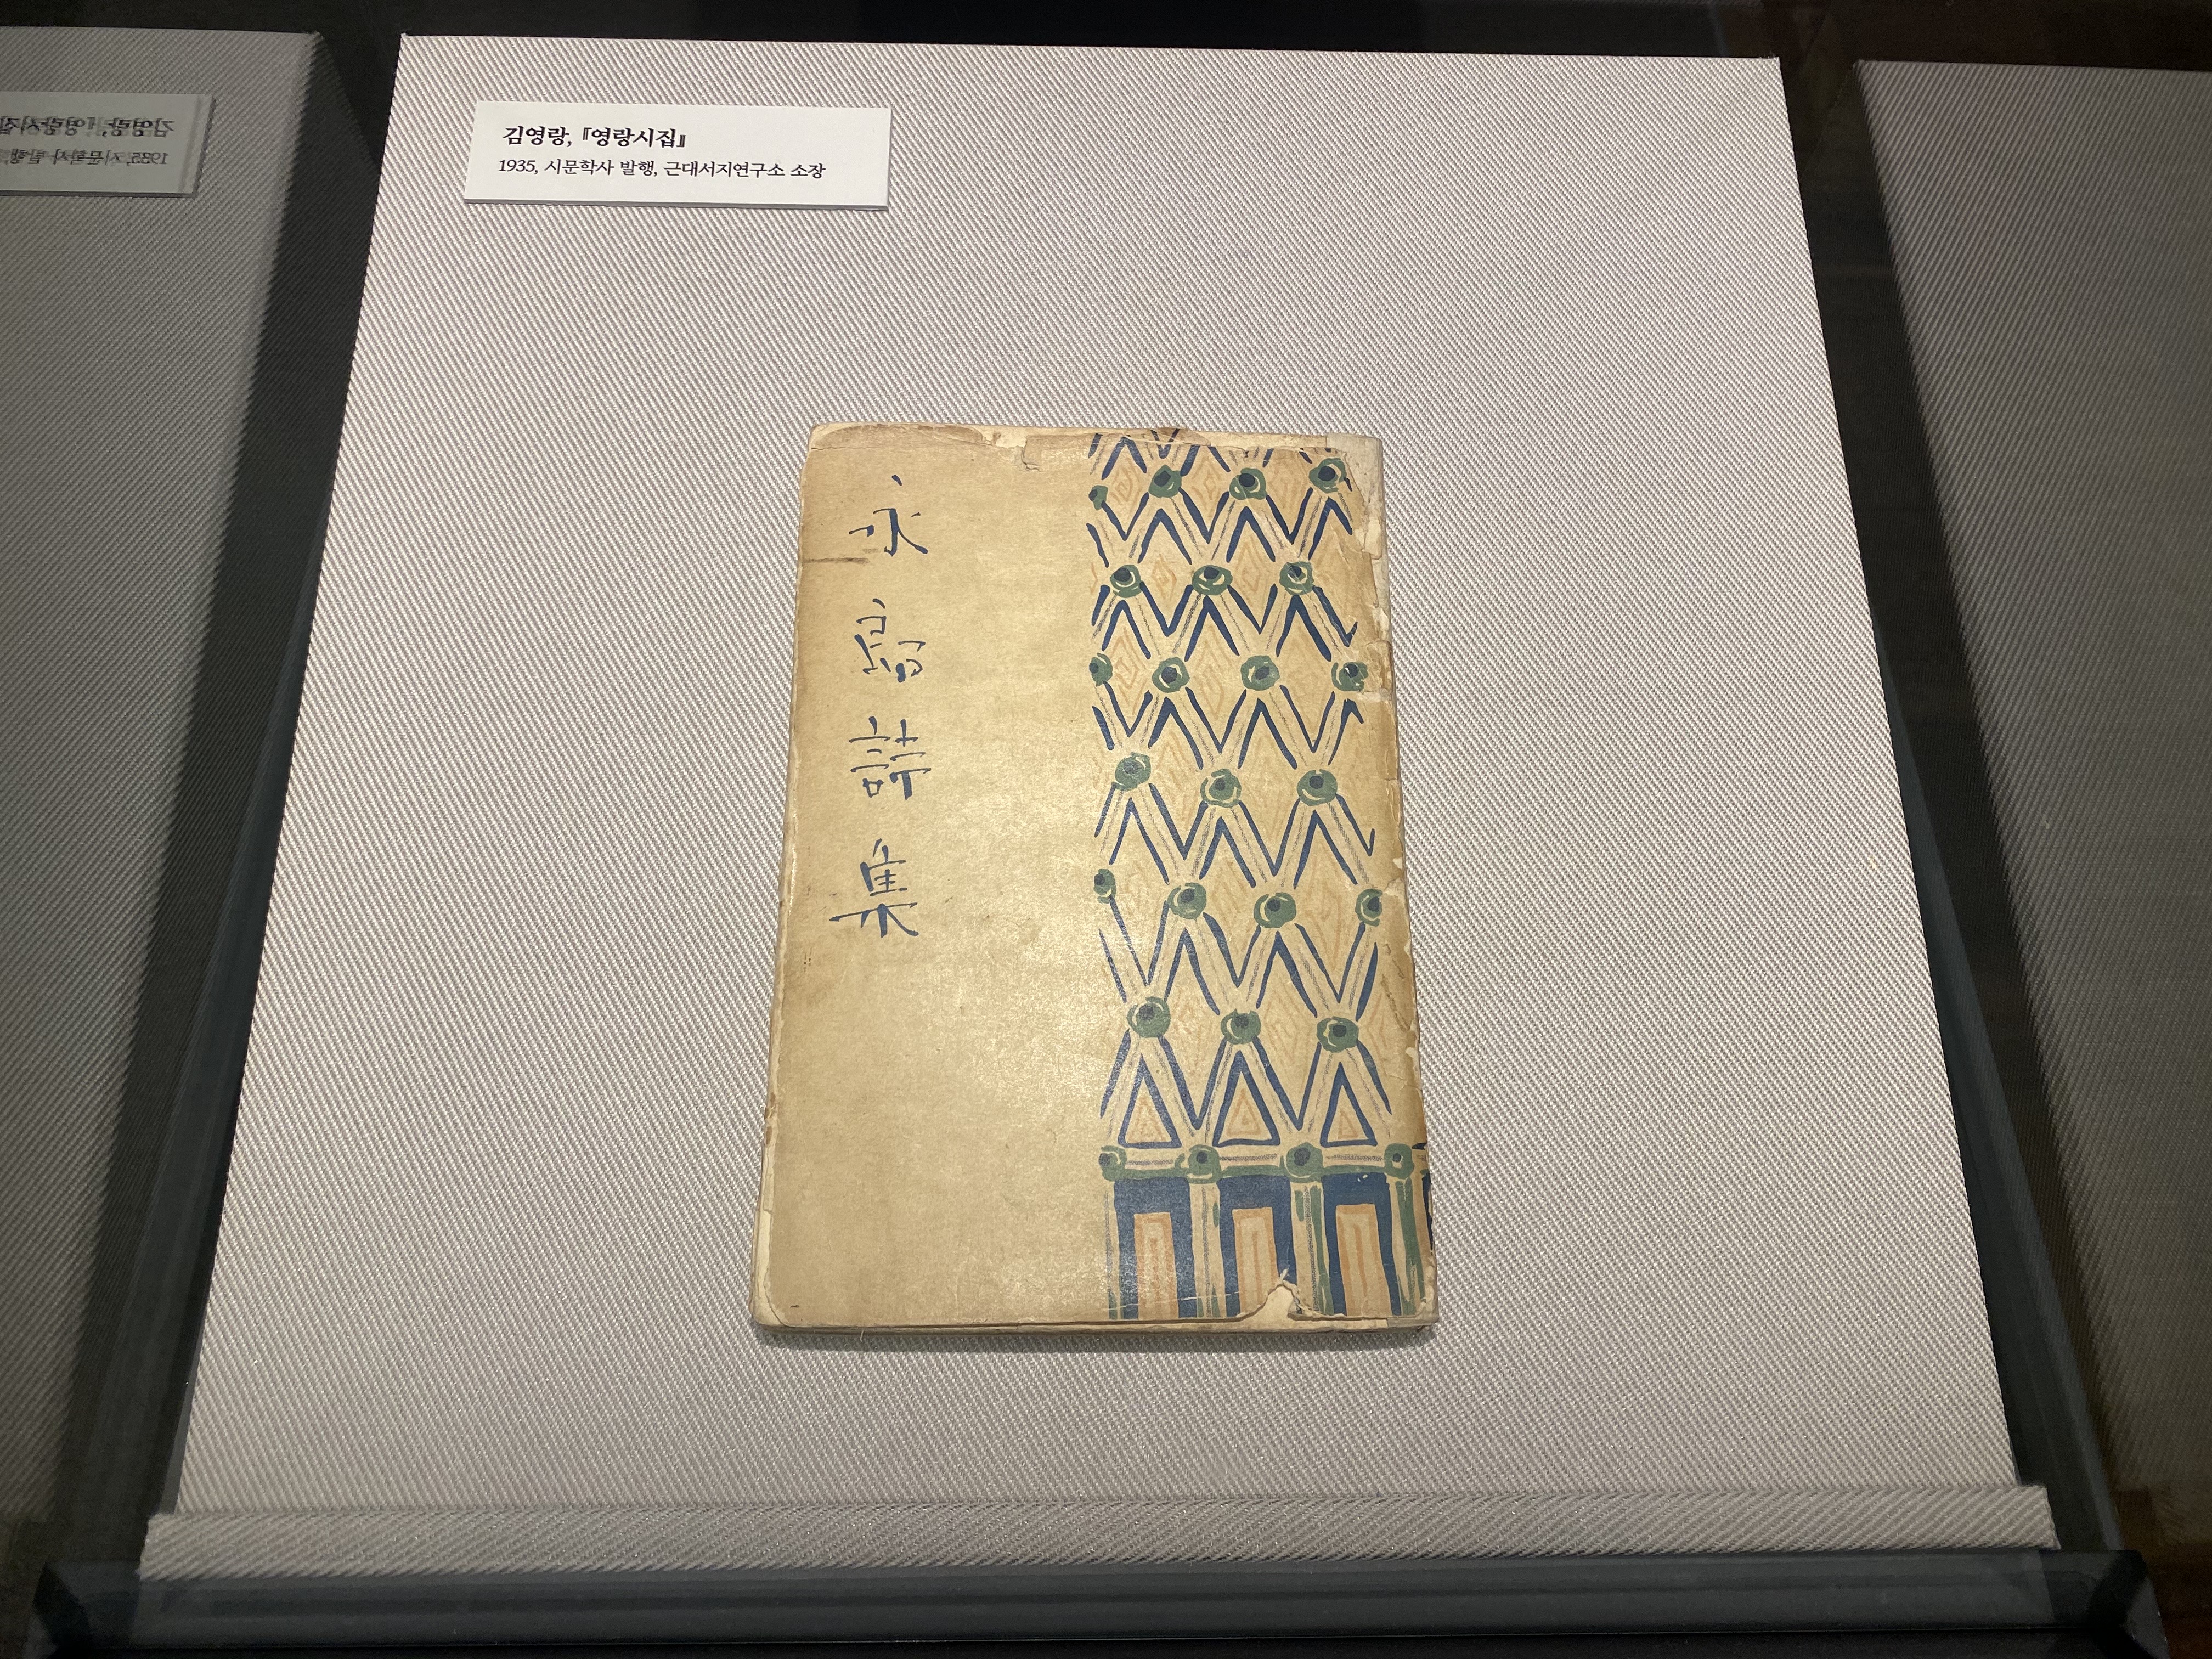 김영랑, 『영랑시집』
1935, 시문학사 발행, 근대서지연구소 소장
永郎詩集